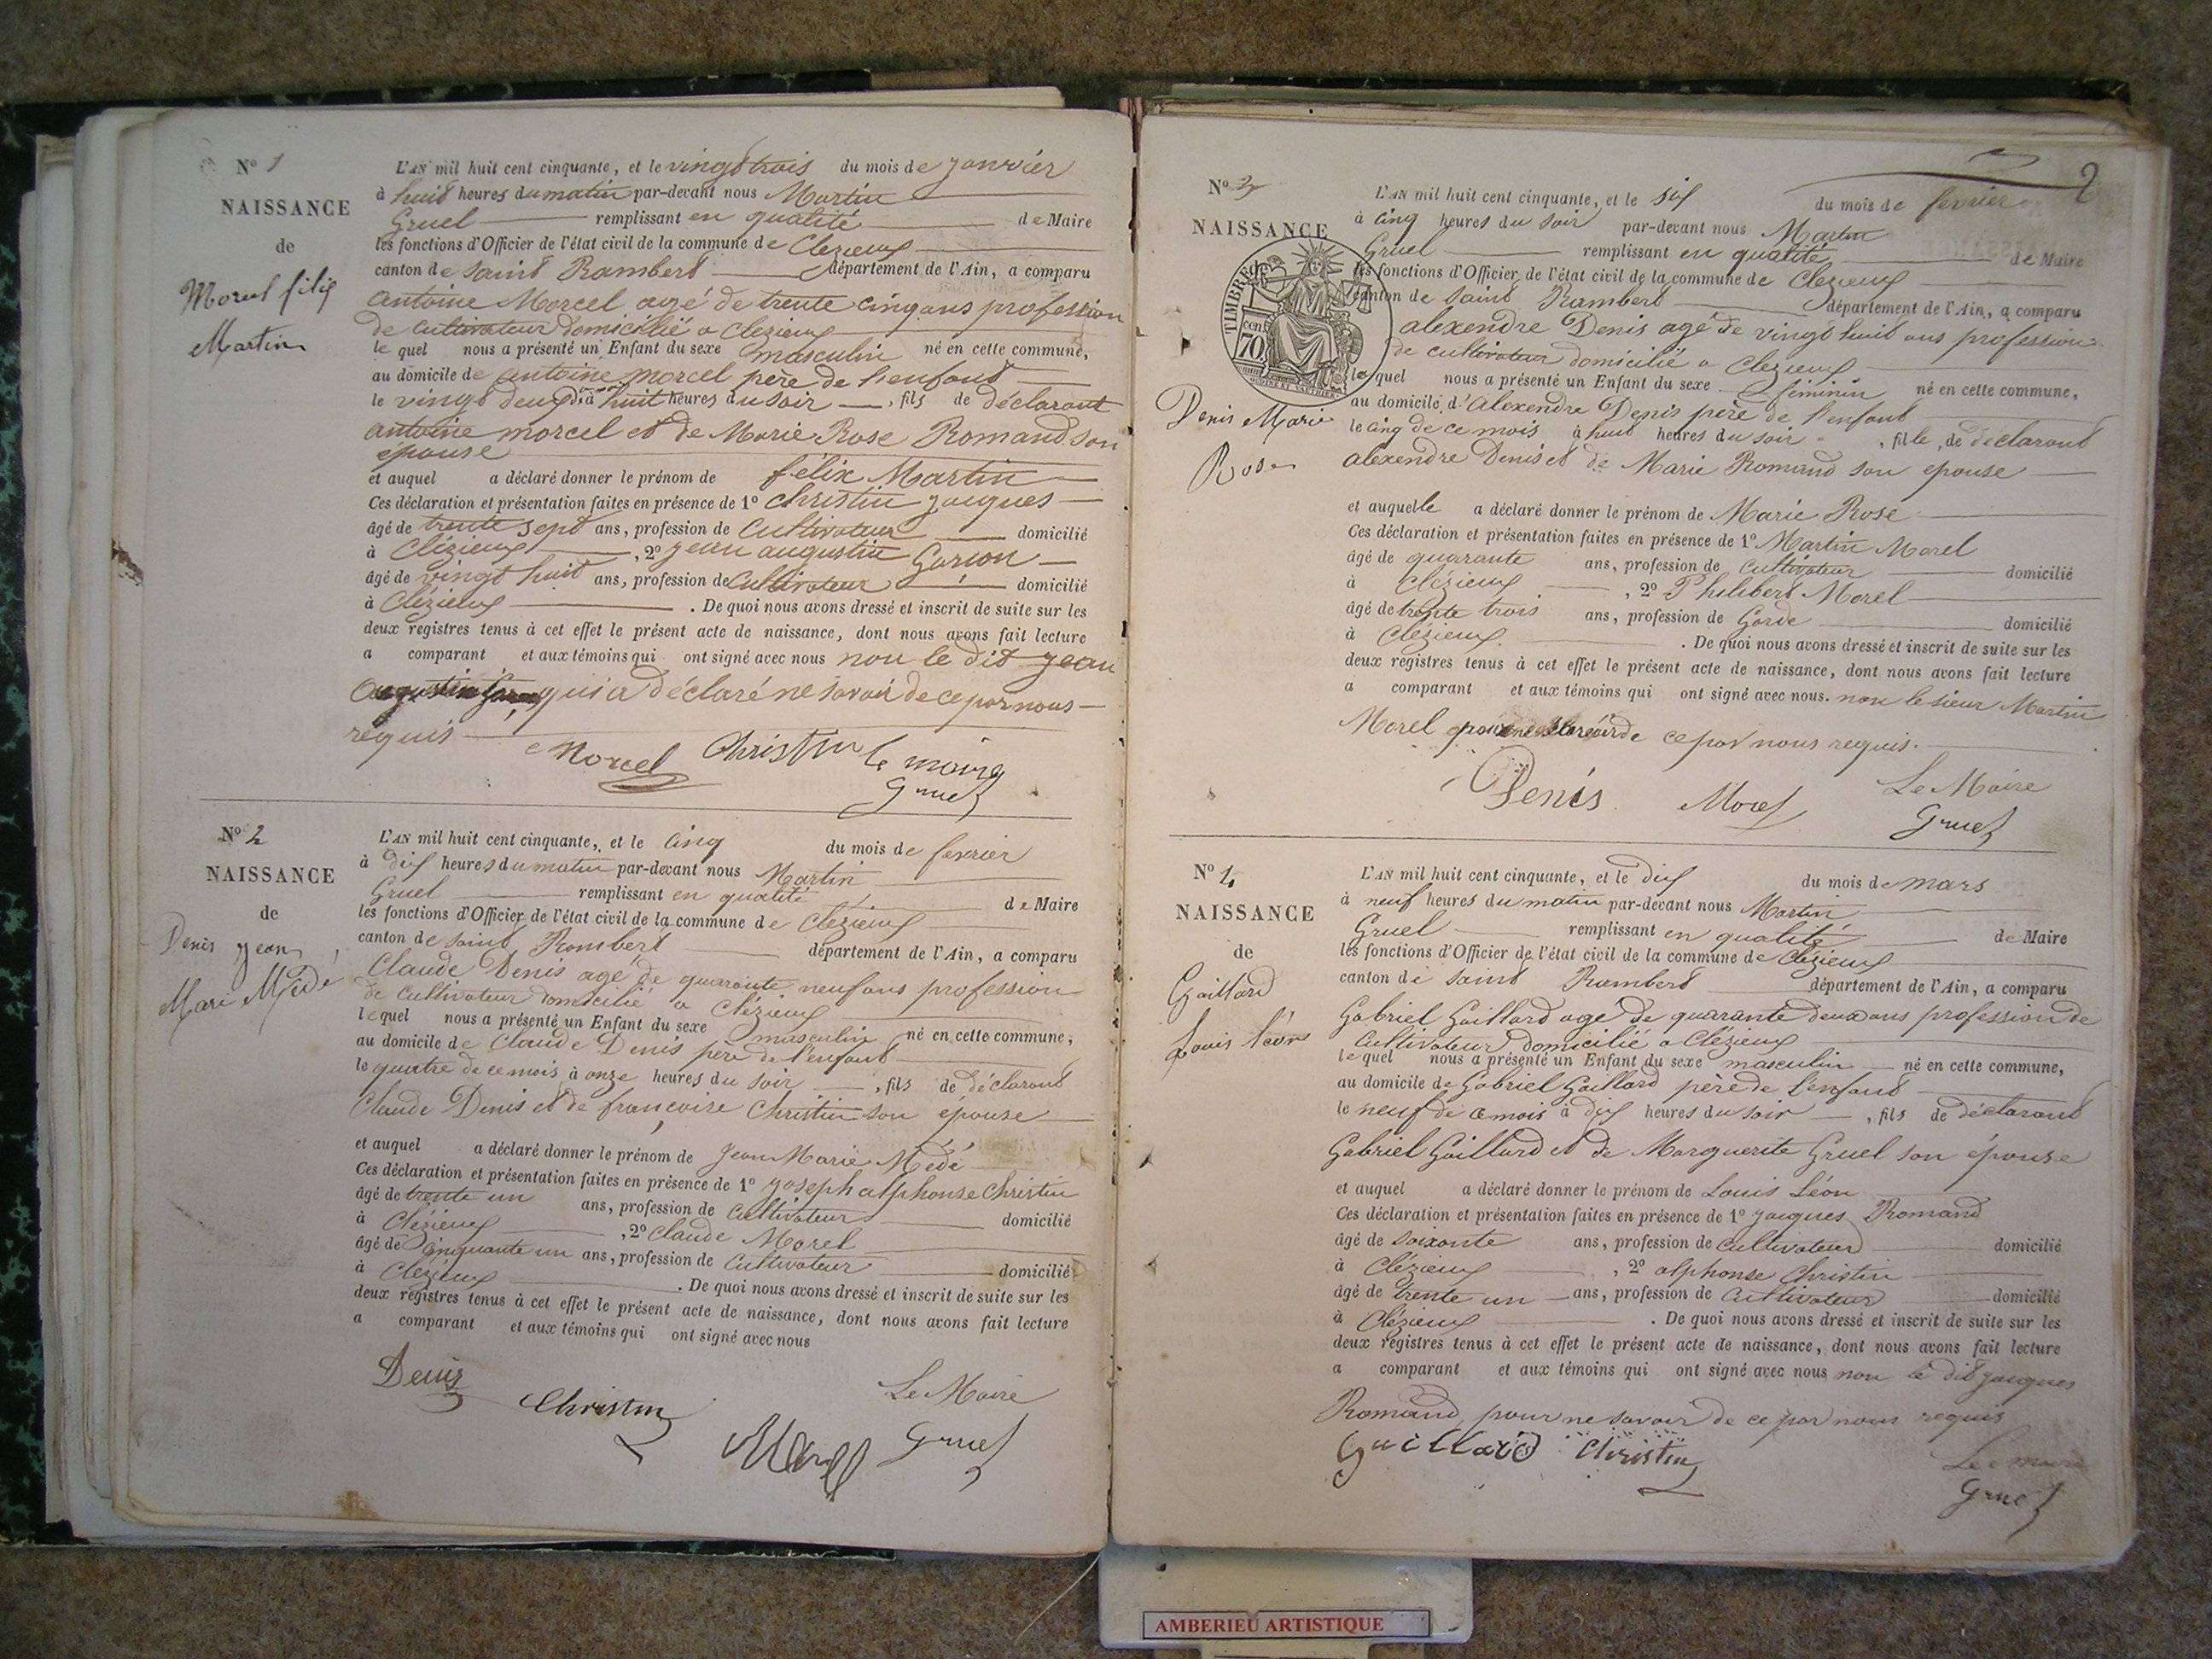 N° 1
NAISSANCE
de
Morcel félix
Martin
L'AN mil huit cent cinquante, et le vingt trois du mois de janvier
à huit heures du matin par-devant nous Martin
Gruel remplissant en qualité de Maire
les fonctions d'Officier de l'état civil de la commune de Clezieux
canton de saint Rambert département de l'Ain, a comparu
antoine Morcel agé de trente cinq ans profession
de cultivateur domicilié a clezieux
le quel nous a présenté un Enfant du sexe masculin né en cette commune,
au domicile de antoine morcel père de l'enfant
le vingt deux à huit heures du soir , fils de déclarant
antoine morcel et de Marie Rose Romand son
epouse
et auquel a déclaré donner le prénom de félix Martin
Ces déclaration et présentation faites en présence de 1° Christin jacques
âgé de trente sept ans, profession de Cultivateur domicilié
à Clézieux , 2° jean augustin
âgé de vingt huit ans, profession de Cultivateur domicilié
à Clézieux . De quoi nous avons dressé et inscrit de suite sur les
deux registres tenus à cet effet le présent acte de naissance, dont nous avons fait lecture
a comparant et aux témoins qui ont signé avec nous non le dit jean
augustin qui a déclaré ne savoir de ce par nous
requis
Morcel Christin le maire
Gruel
N° 2
NAISSANCE
de
Denis jean
Mari Médé
L'AN mil huit cent cinquante, et le cinq du mois de fevrier
à dix heures du matin par-devant nous Martin
Gruel remplissant en qualité de Maire
les fonctions d'Officier de l'état civil de la commune de Clezieux
canton de saint Rambert département de l'Ain, a comparu
Claude Denis agé de quarante neuf ans profession
de cultivateur domicilié a Clézieux
le quel nous a présenté un Enfant du sexe masculin né en cette commune,
au domicile de Claude Denis père de l'enfant
le quatre de ce mois à onze heures du soir , fils de déclarant
Claude Denis et de françoise Christin son épouse
et auquel a déclaré donner le prénom de Jean Marie Médé
Ces déclaration et présentation faites en présence de 1° joseph alphonse Christin
âgé de trente un ans, profession de Cultivateur domicilié
à Clézieux , 2° Claude Morel
âgé de cinquante un ans, profession de Cultivateur domicilié
à Clézieux . De quoi nous avons dressé et inscrit de suite sur les
deux registres tenus à cet effet le présent acte de naissance, dont nous avons fait lecture
a comparant et aux témoins qui ont signé avec nous
Denis Le Maire
Christin Morel Gruel
2
N° 3
NAISSANCE
TIMBRE
70
Denis Marie
Rose
L'AN mil huit cent cinquante, et le six du mois de fevrier
à cinq heures du soir par-devant nous Martin
Gruel remplissant en qualité de Maire
les fonctions d'Officier de l'état civil de la commune de Clezieux
canton de saint Rambert département de l'Ain, a comparu
alexendre Denis agé de vingt huit ans profession
de cultivateur domicilié a Clezieux
le quel nous a présenté un Enfant du sexe féminin né en cette commune,
au domicile d'Alexendre Denis père de l'enfant
le cinq de ce mois à huit heures du soir , fille de déclarant
alexendre Denis et de Marie Romand son epouse
et auquelle a déclaré donner le prénom de Marie Rose
Ces déclaration et présentation faites en présence de 1° Martin Morel
âgé de quarante ans, profession de cultivateur domicilié
à Clézieux , 2° Philibert Morel
âgé de trente trois ans, profession de Garde domicilié
à Clézieux . De quoi nous avons dressé et inscrit de suite sur les
deux registres tenus à cet effet le présent acte de naissance, dont nous avons fait lecture
a comparant et aux témoins qui ont signé avec nous. non le sieur Martin
Morel pour ne savoir de ce par nous requis.
Denis Morel Le Maire
Gruel
N° 4
NAISSANCE
de
Gaillard
Louis léon
L'AN mil huit cent cinquante, et le dix du mois de mars
à neuf heures du matin par-devant nous Martin
Gruel remplissant en qualité de Maire
les fonctions d'Officier de l'état civil de la commune de Clézieux
canton de saint Rambert département de l'Ain, a comparu
Gabriel Gaillard agé de quarante deux ans profession de
Cultivateur domicilié a Clézieux
le quel nous a présenté un Enfant du sexe masculin né en cette commune,
au domicile de Gabriel Gaillard père de l'enfant
le neuf de ce mois à dix heures du soir , fils de déclarant
Gabriel Gaillard et de Marguerite Gruel son épouse
et auquel a déclaré donner le prénom de Louis Léon
Ces déclaration et présentation faites en présence de 1° jacques Romand
âgé de soixante ans, profession de cultivateur domicilié
à Clézieux , 2° alphonse Christin
âgé de trente un ans, profession de Cultivateur domicilié
à Clézieux . De quoi nous avons dressé et inscrit de suite sur les
deux registres tenus à cet effet le présent acte de naissance, dont nous avons fait lecture
a comparant et aux témoins qui ont signé avec nous non le dit jacques
Romand pour ne savoir de ce par nous requis
Guillard Christin Le maire
Gruel
AMBERIEU ARTISTIQUE